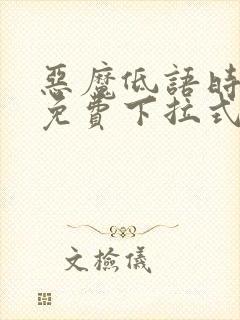 惡魔低語時
免費下拉式
文檢儀